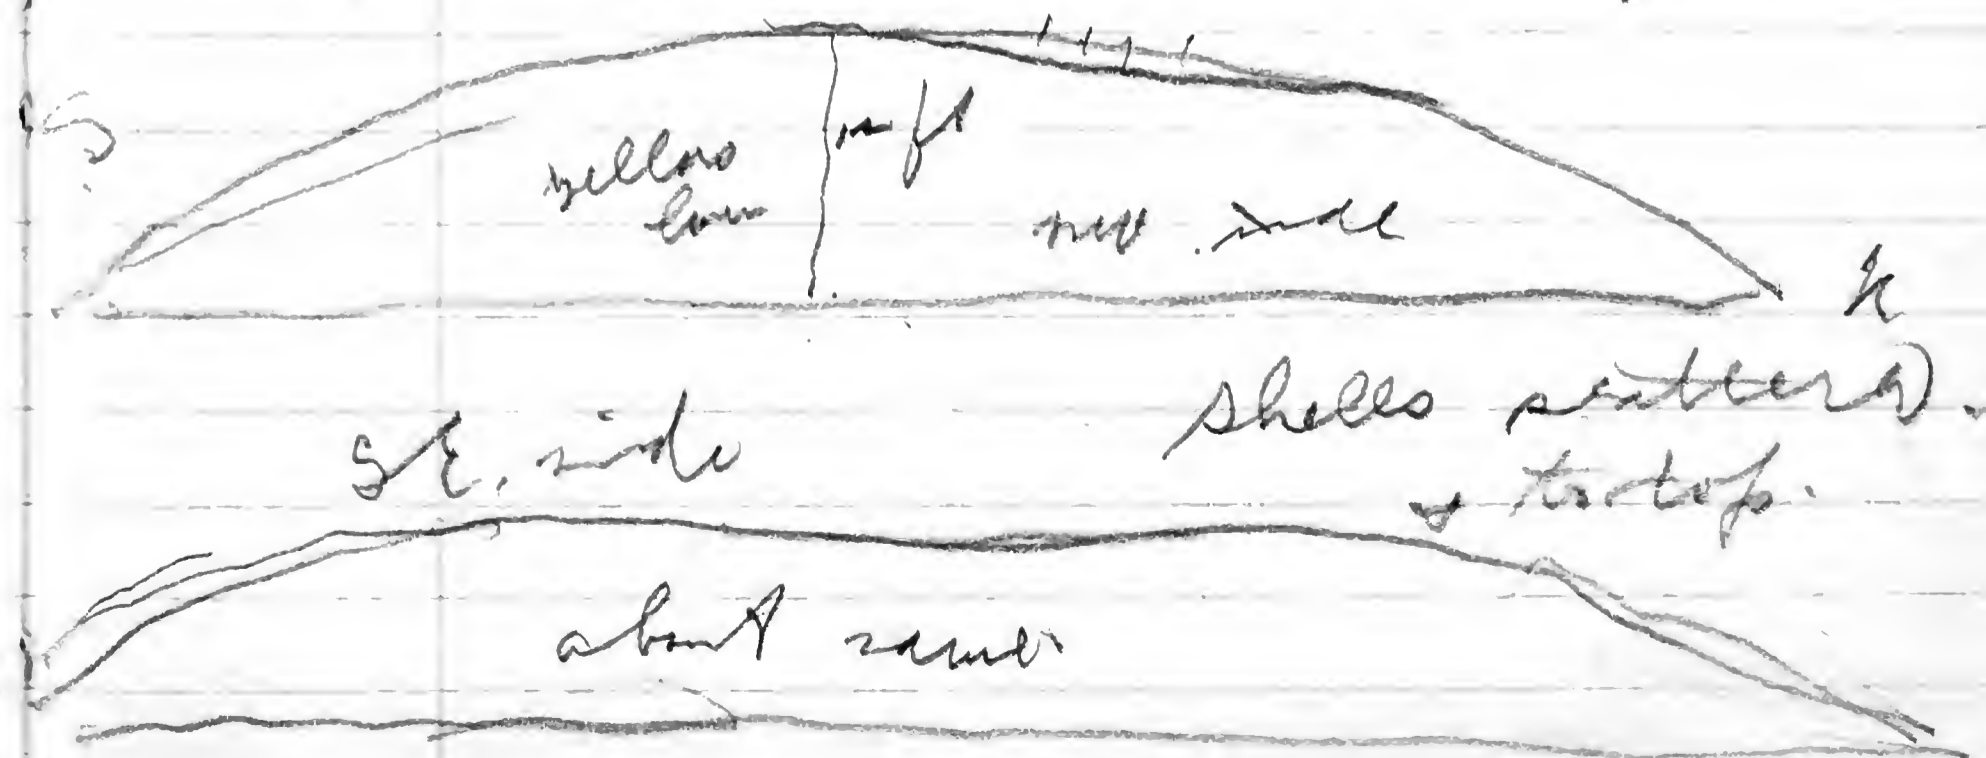 S
yellow
loam
NW. side
N
SE. side
shells scattered.
to top.
about same